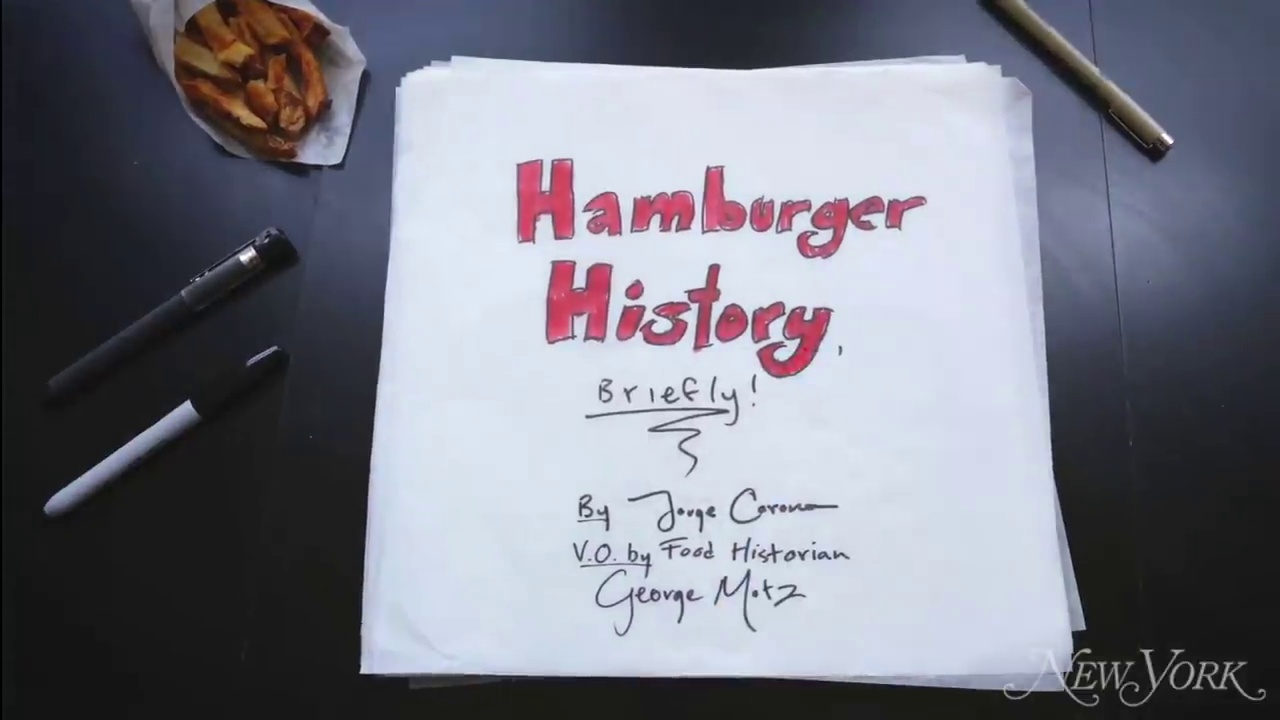 Hamburger
History,
Briefly!
By Jorge Corona
V.O. by Food Historian
George Motz
NEW YORK